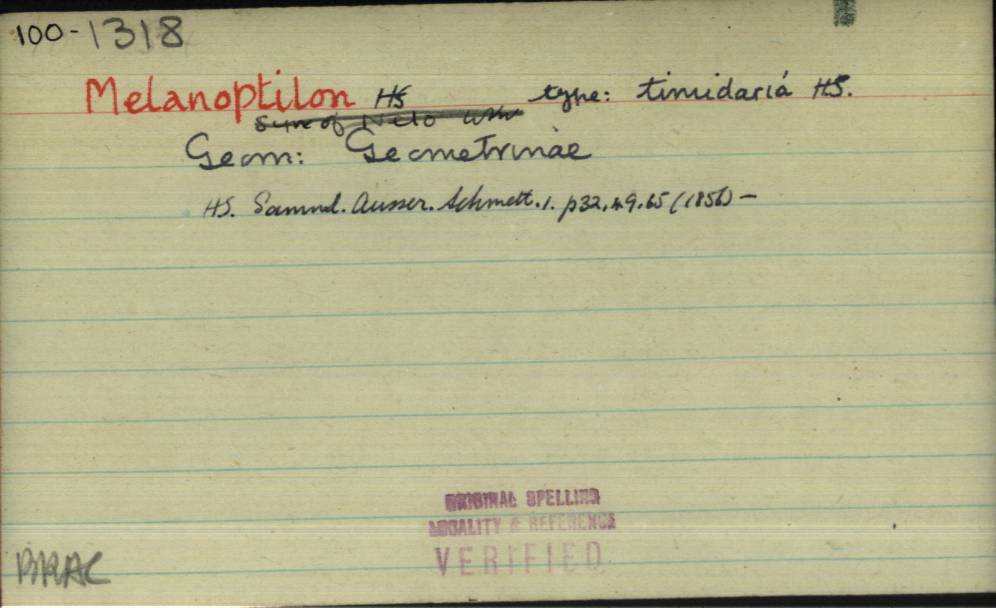 100-1318
Melanoptilon HS type: timidaria HS.
Syn of
Geom: Geometrinae
HS. Samml. Ausser. Schmett. 1. p32, 49, 65 (1856) —
ORIGINAL SPELLING
LOCALITY & REFERENCE
VERIFIED
BRAC